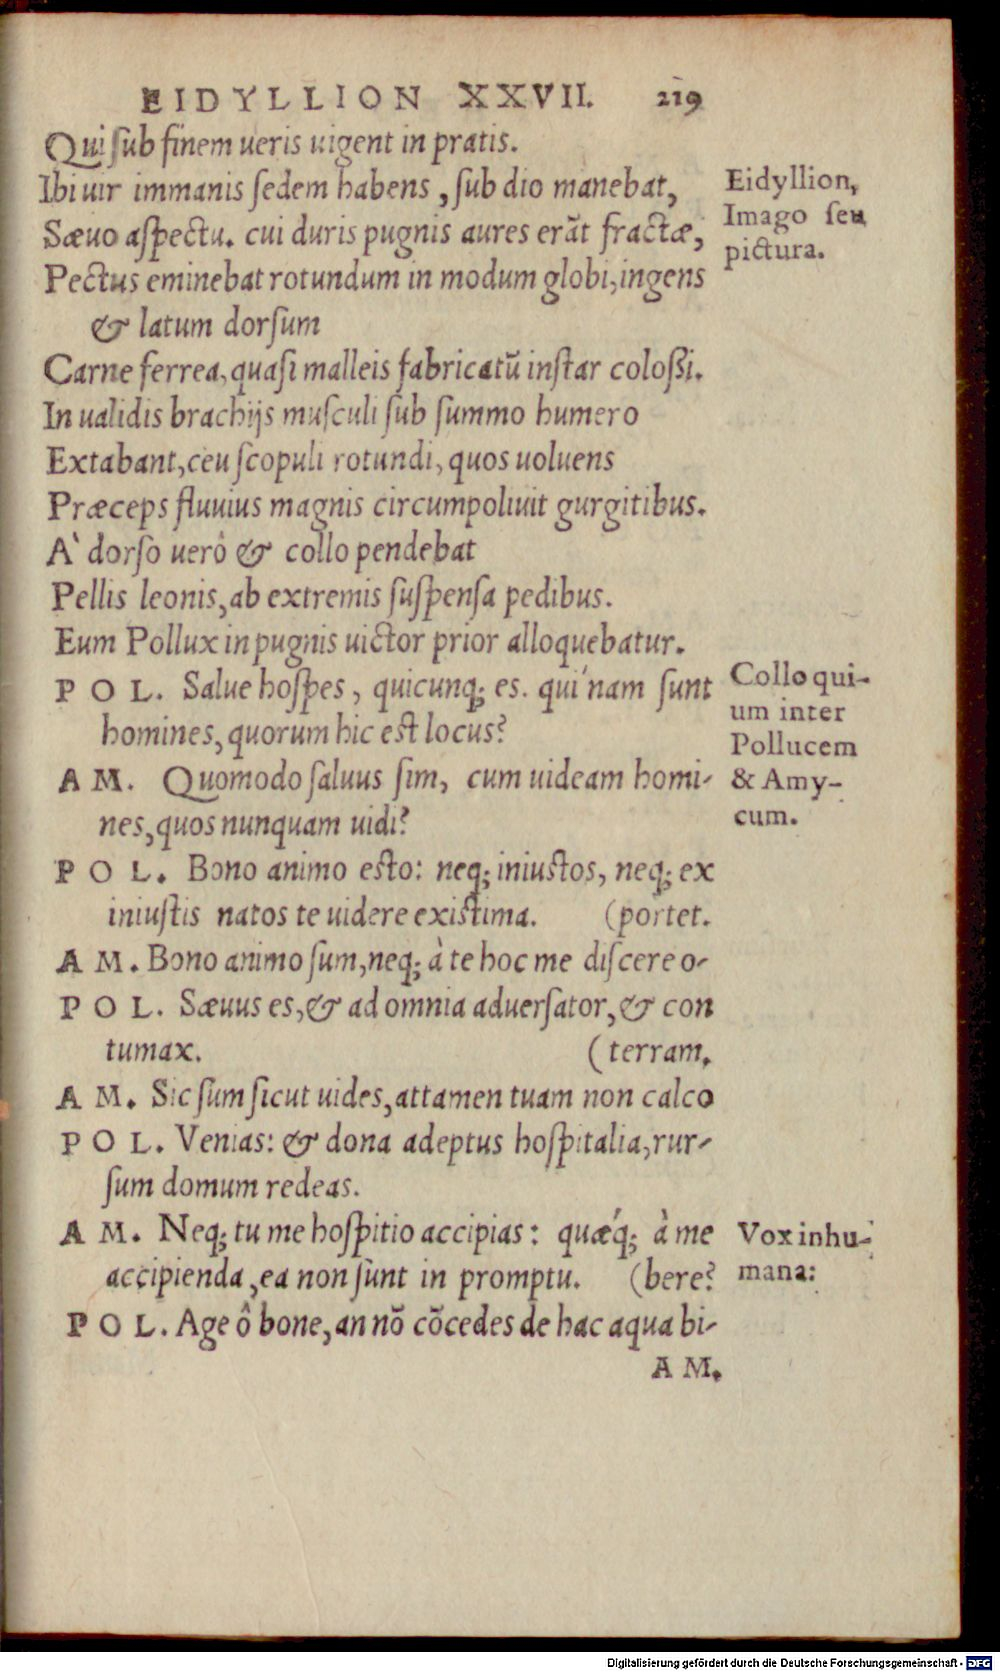 EIDYLLION XXVII. 219
Qui ſub finem ueris uigent in pratis.
Ibi uir immanis ſedem habens, ſub dio manebat,
Sæuo aſpectu. cui duris pugnis aures erãt fractæ,
Pectus eminebat rotundum in modum globi, ingens
& latum dorſum
Carne ferrea, quaſi malleis fabricatũ inſtar coloſſi.
In ualidis brachijs muſculi ſub ſummo humero
Extabant, ceu ſcopuli rotundi, quos uoluens
Præceps fluuius magnis circumpoliuit gurgitibus.
A` dorſo uerò & collo pendebat
Pellis leonis, ab extremis ſuſpenſa pedibus.
Eum Pollux in pugnis uictor prior alloquebatur.
POL. Salue hoſpes, quicunq; es. qui´nam ſunt
homines, quorum hic eſt locus?
AM. Quomodo ſaluus ſim, cum uideam homi-
nes, quos nunquam uidi?
POL. Bono animo eſto: neq; iniuſtos, neq; ex
iniuſtis natos te uidere exiſtima. (portet.
AM. Bono animo ſum, neq; à te hoc me diſcere o-
POL. Sæuus es, & ad omnia aduerſator, & con
tumax. (terram.
AM. Sic ſum ſicut uides, attamen tuam non calco
POL. Venias: & dona adeptus hoſpitalia, rur-
ſum domum redeas.
AM. Neq; tu me hoſpitio accipias: quǽq; à me
accipienda, ea non ſunt in promptu. (bere?
POL. Age ô bone, an nõ cõcedes de hac aqua bi-
AM.
Eidyllion,
Imago ſeu
pictura.
Colloqui-
um inter
Pollucem
& Amy-
cum.
Vox inhu-
mana:
Digitalisierung gefördert durch die Deutsche Forschungsgemeinschaft - DFG